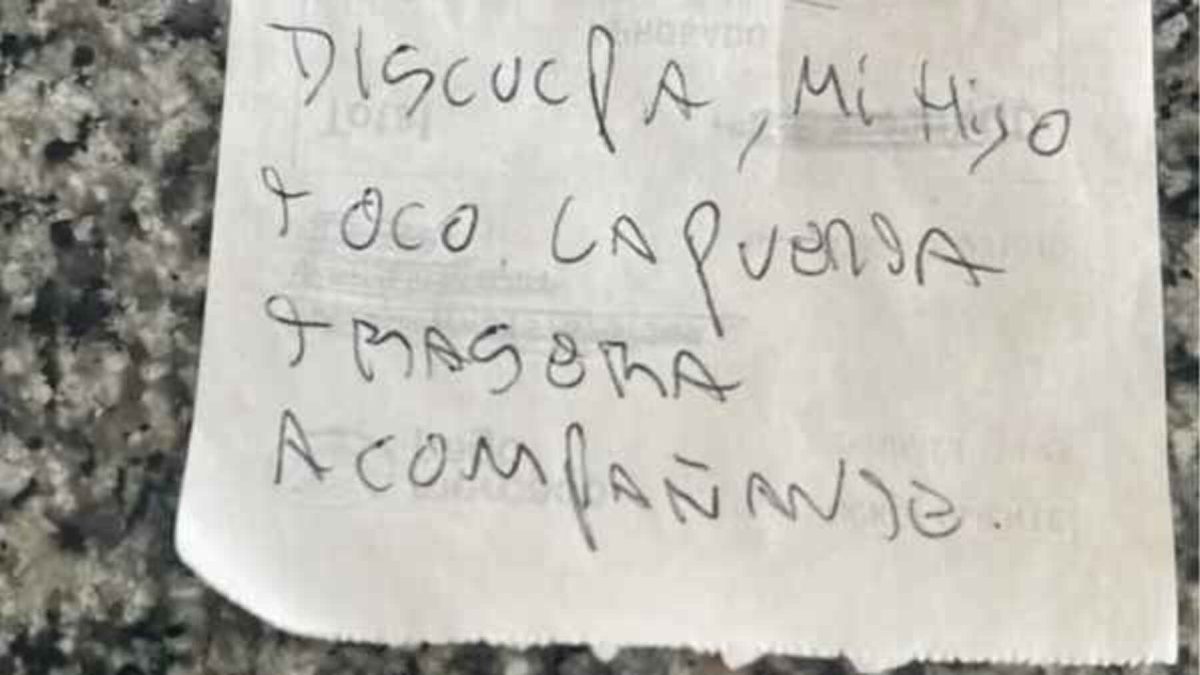 DISCULPA, Mi Hijo
TOCO LA PUERTA
TRASERA
ACOMPAÑANTE.